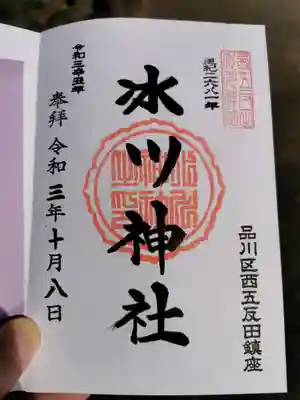 皇紀二六八一年
品川区西五反田鎮座
氷川神社
令和三辛丑年
奉拝 令和三年十月八日